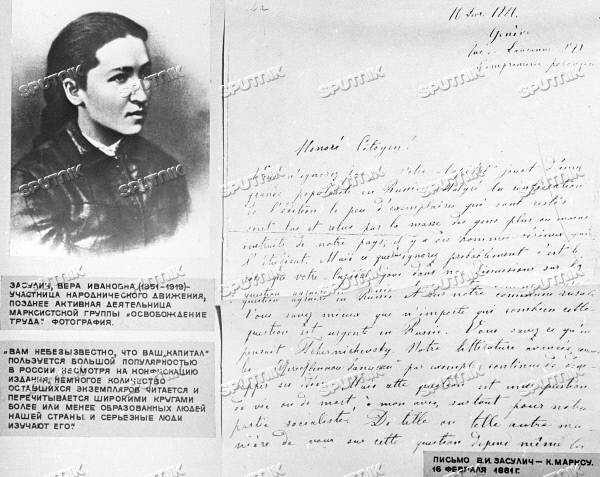 ЗАСУЛИЧ, ВЕРА ИВАНОВНА (1851-1919)-
УЧАСТНИЦА НАРОДНИЧЕСКОГО ДВИЖЕНИЯ,
ПОЗДНЕЕ АКТИВНАЯ ДЕЯТЕЛЬНИЦА
МАРКСИСТСКОЙ ГРУППЫ «ОСВОБОЖДЕНИЕ
ТРУДА». ФОТОГРАФИЯ.
«ВАМ НЕБЕЗЫЗВЕСТНО, ЧТО ВАШ „КАПИТАЛ“
ПОЛЬЗУЕТСЯ БОЛЬШОЙ ПОПУЛЯРНОСТЬЮ
В РОССИИ. НЕСМОТРЯ НА КОНФИСКАЦИЮ
ИЗДАНИЯ, НЕМНОГОЕ КОЛИЧЕСТВО
ОСТАВШИХСЯ ЭКЗЕМПЛЯРОВ ЧИТАЕТСЯ И
ПЕРЕЧИТЫВАЕТСЯ ШИРОКИМИ КРУГАМИ
БОЛЕЕ ИЛИ МЕНЕЕ ОБРАЗОВАННЫХ ЛЮДЕЙ
НАШЕЙ СТРАНЫ И СЕРЬЕЗНЫЕ ЛЮДИ
ИЗУЧАЮТ ЕГО?
16 1881.
Genève
Rue de Lausanne № 
L'imprimerie polonaise
Honoré Citoyen!
n'ignorez pas que votre jouit d'une
grande popularité en Russie. Malgré la confiscation
de l'édition le peu d'exemplaires qui sont restés
sont lus et relus par la masse des gens plus ou moins
instruits de notre pays, il y a des hommes sérieux qui
l'étudient. Mais ce que vous ignorez probablement c'est le
rôle que votre Capital joue dans nos discussions sur la
question agraire en Russie et sur notre commune rurale.
Vous savez mieux que n'importe qui combien cette
question est urgente en Russie. Vous savez ce qu'en
pensait Tchernichevsky. Notre littérature avancée, comme
les par exemple, continue de
Mais cette question est une question
de vie ou de mort, à mon avis, surtout pour notre
partie socialiste. De telle ou telle autre ma-
nière de voir sur cette question dépend même
ПИСЬМО В.И. ЗАСУЛИЧ — К. МАРКСУ.
16 ФЕВРАЛЯ 1881 Г.
SPUTNIK